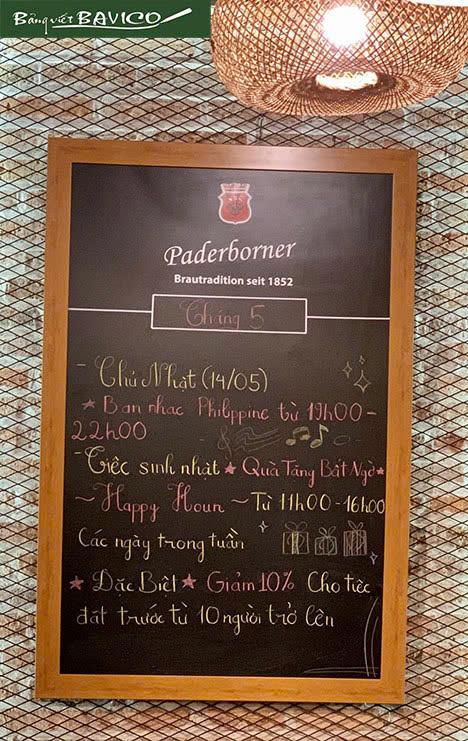 Bảng viết BAVICO
Paderborner
Brautradition seit 1852
Tháng 5
- Chủ Nhật (14/05)
★ Ban nhạc Philippine từ 19h00 -
22h00
- Tiệc sinh nhật ★ Quà Tặng Bất Ngờ ★
~ Happy Houn ~ Từ 11h00 - 16h00
Các ngày trong tuần
★ Đặc Biệt ★ Giảm 10% Cho tiệc
đặt trước từ 10 người trở lên